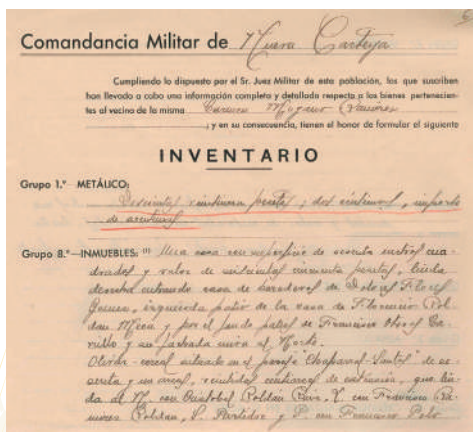 Comandancia Militar de Nueva Carteya
Cumpliendo lo dispuesto por el Sr. Juez Militar de esta población, los que suscriben
han llevado a cabo una información completa y detallada respecto a los bienes pertenecien-
tes al vecino de la misma Carmen
; y en su consecuencia, tienen el honor de formular el siguiente
INVENTARIO
Grupo 1.º- METÁLICO:
pesetas, dos céntimos, importe
de aceitunas
Grupo 8.º- INMUEBLES: (1) Una casa con superficie de sesenta metros cua-
drados y valor de cincuenta pesetas, linda
derecha entrando casa de de Dolores Flores
izquierda patio de la casa de Florencio Rol-
dan y por el fondo patio de Francisco Ca-
y su fachada mira al Norte.
Olivar-cereal situado en el "Chaparral-Santos" de se-
senta y un areas, centiareas de extensión, que lin-
da al N. con Cristobal Roldan Y. con Francisco
Roldan, S. Partidor y P. con Francisco Polo